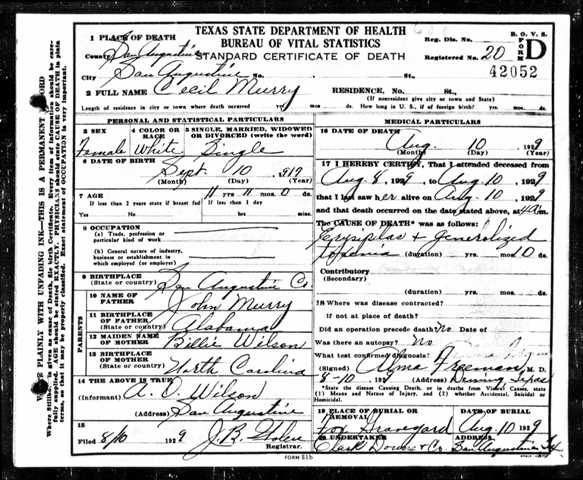 TEXAS STATE DEPARTMENT OF HEALTH
BUREAU OF VITAL STATISTICS
STANDARD CERTIFICATE OF DEATH
B. O. V. S.
FORM D
Reg. Dis. No.
Registered No. 20
42052
1 PLACE OF DEATH
County San Augustine
City San Augustine No. St.
2 FULL NAME Cecil Murry RESIDENCE, No. St.
(If nonresident give city or town and State)
Length of residence in city or town where death occurred yrs. mos. ds. How long in U. S., if of foreign birth? yrs. mos. ds.
PERSONAL AND STATISTICAL PARTICULARS
3 SEX Female
4 COLOR OR RACE White
5 SINGLE, MARRIED, WIDOWED OR DIVORCED (write the word) Single
6 DATE OF BIRTH
Sept. 10 1917
(Month) (Day) (Year)
7 AGE 11 yrs 11 mos. 0 ds.
If less than 2 years state if breast fed If less than 1 day
Yes No hrs. min.
8 OCCUPATION
(a) Trade, profession or particular kind of work
(b) General nature of industry, business or establishment in which employed (or employer)
9 BIRTHPLACE
(State or country) San Augustine Co.
PARENTS
10 NAME OF FATHER John Murry
11 BIRTHPLACE OF FATHER
(State or country) Alabama
12 MAIDEN NAME OF MOTHER Billie Wilson
13 BIRTHPLACE OF MOTHER
(State or country) North Carolina
14 THE ABOVE IS TRUE
(Informant) Wilson
(Address) San Augustine
15
Filed 8/10 1929 J. B.
Registrar.
MEDICAL PARTICULARS
16 DATE OF DEATH
Aug. 10 1929
(Month) (Day) (Year)
17 I HEREBY CERTIFY, That I attended deceased from
Aug 8, 1929, to Aug 10, 1929
that I last saw her alive on Aug 10, 1929
and that death occurred on the date stated above, at m.
The CAUSE OF DEATH* was as follows:
Erysiplas & Generolized
(duration) yrs. mos. 10 ds.
Contributory
(Secondary)
(duration) yrs. mos. ds.
18 Where was disease contracted?
If not at place of death?
Did an operation precede death? no Date of
Was there an autopsy? no
What test confirmed diagnosis?
(Signed) Alma Freeman, M. D.
8-10, 192 (Address) Denning Texas
*State the Disease Causing Death, or in deaths from Violent Causes, state (1) Means and Nature of Injury, and (2) Whether Accidental, Suicidal or Homicidal.
19 PLACE OF BURIAL OR REMOVAL DATE OF BURIAL
Fox Graveyard Aug 10 1929
20 UNDERTAKER ADDRESS
Clark Downs & Co. San Augustine Tex
FORM 51b